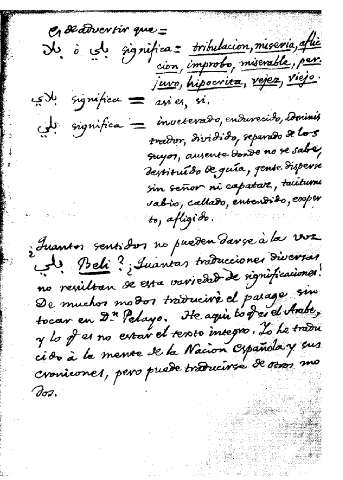 es de advertir que =
بلي ó بلا significa = tribulacion, miseria, aflic
cion, improbo, miserable, per
juro, hipocrita, vejez, viejo.
بلاي significa = asi es, si.
بلي significa = inveterado, endurecido, Adminis
trador, dividido, separado de los
suyos, ausente donde no se sabe,
destituído de guía, gente dispersa
sin señor ni capataz, taciturno
sabio, callado, entendido, exper
to, afligido.
¿Quantos sentidos no pueden darse à la voz
بلي Beli? ¡Quantas traducciones diversas
no resultan de esta variedad de significaciones!
De muchos modos traduciré el pasage sin
tocar en Dn. Pelayo. He aqui lo qe es el Arabe,
y lo qe es no estar el texto integro. Yo he tradu
cido à la mente de la Nacion Española y sus
cronicones, pero puede traducirse de otros mo
dos.